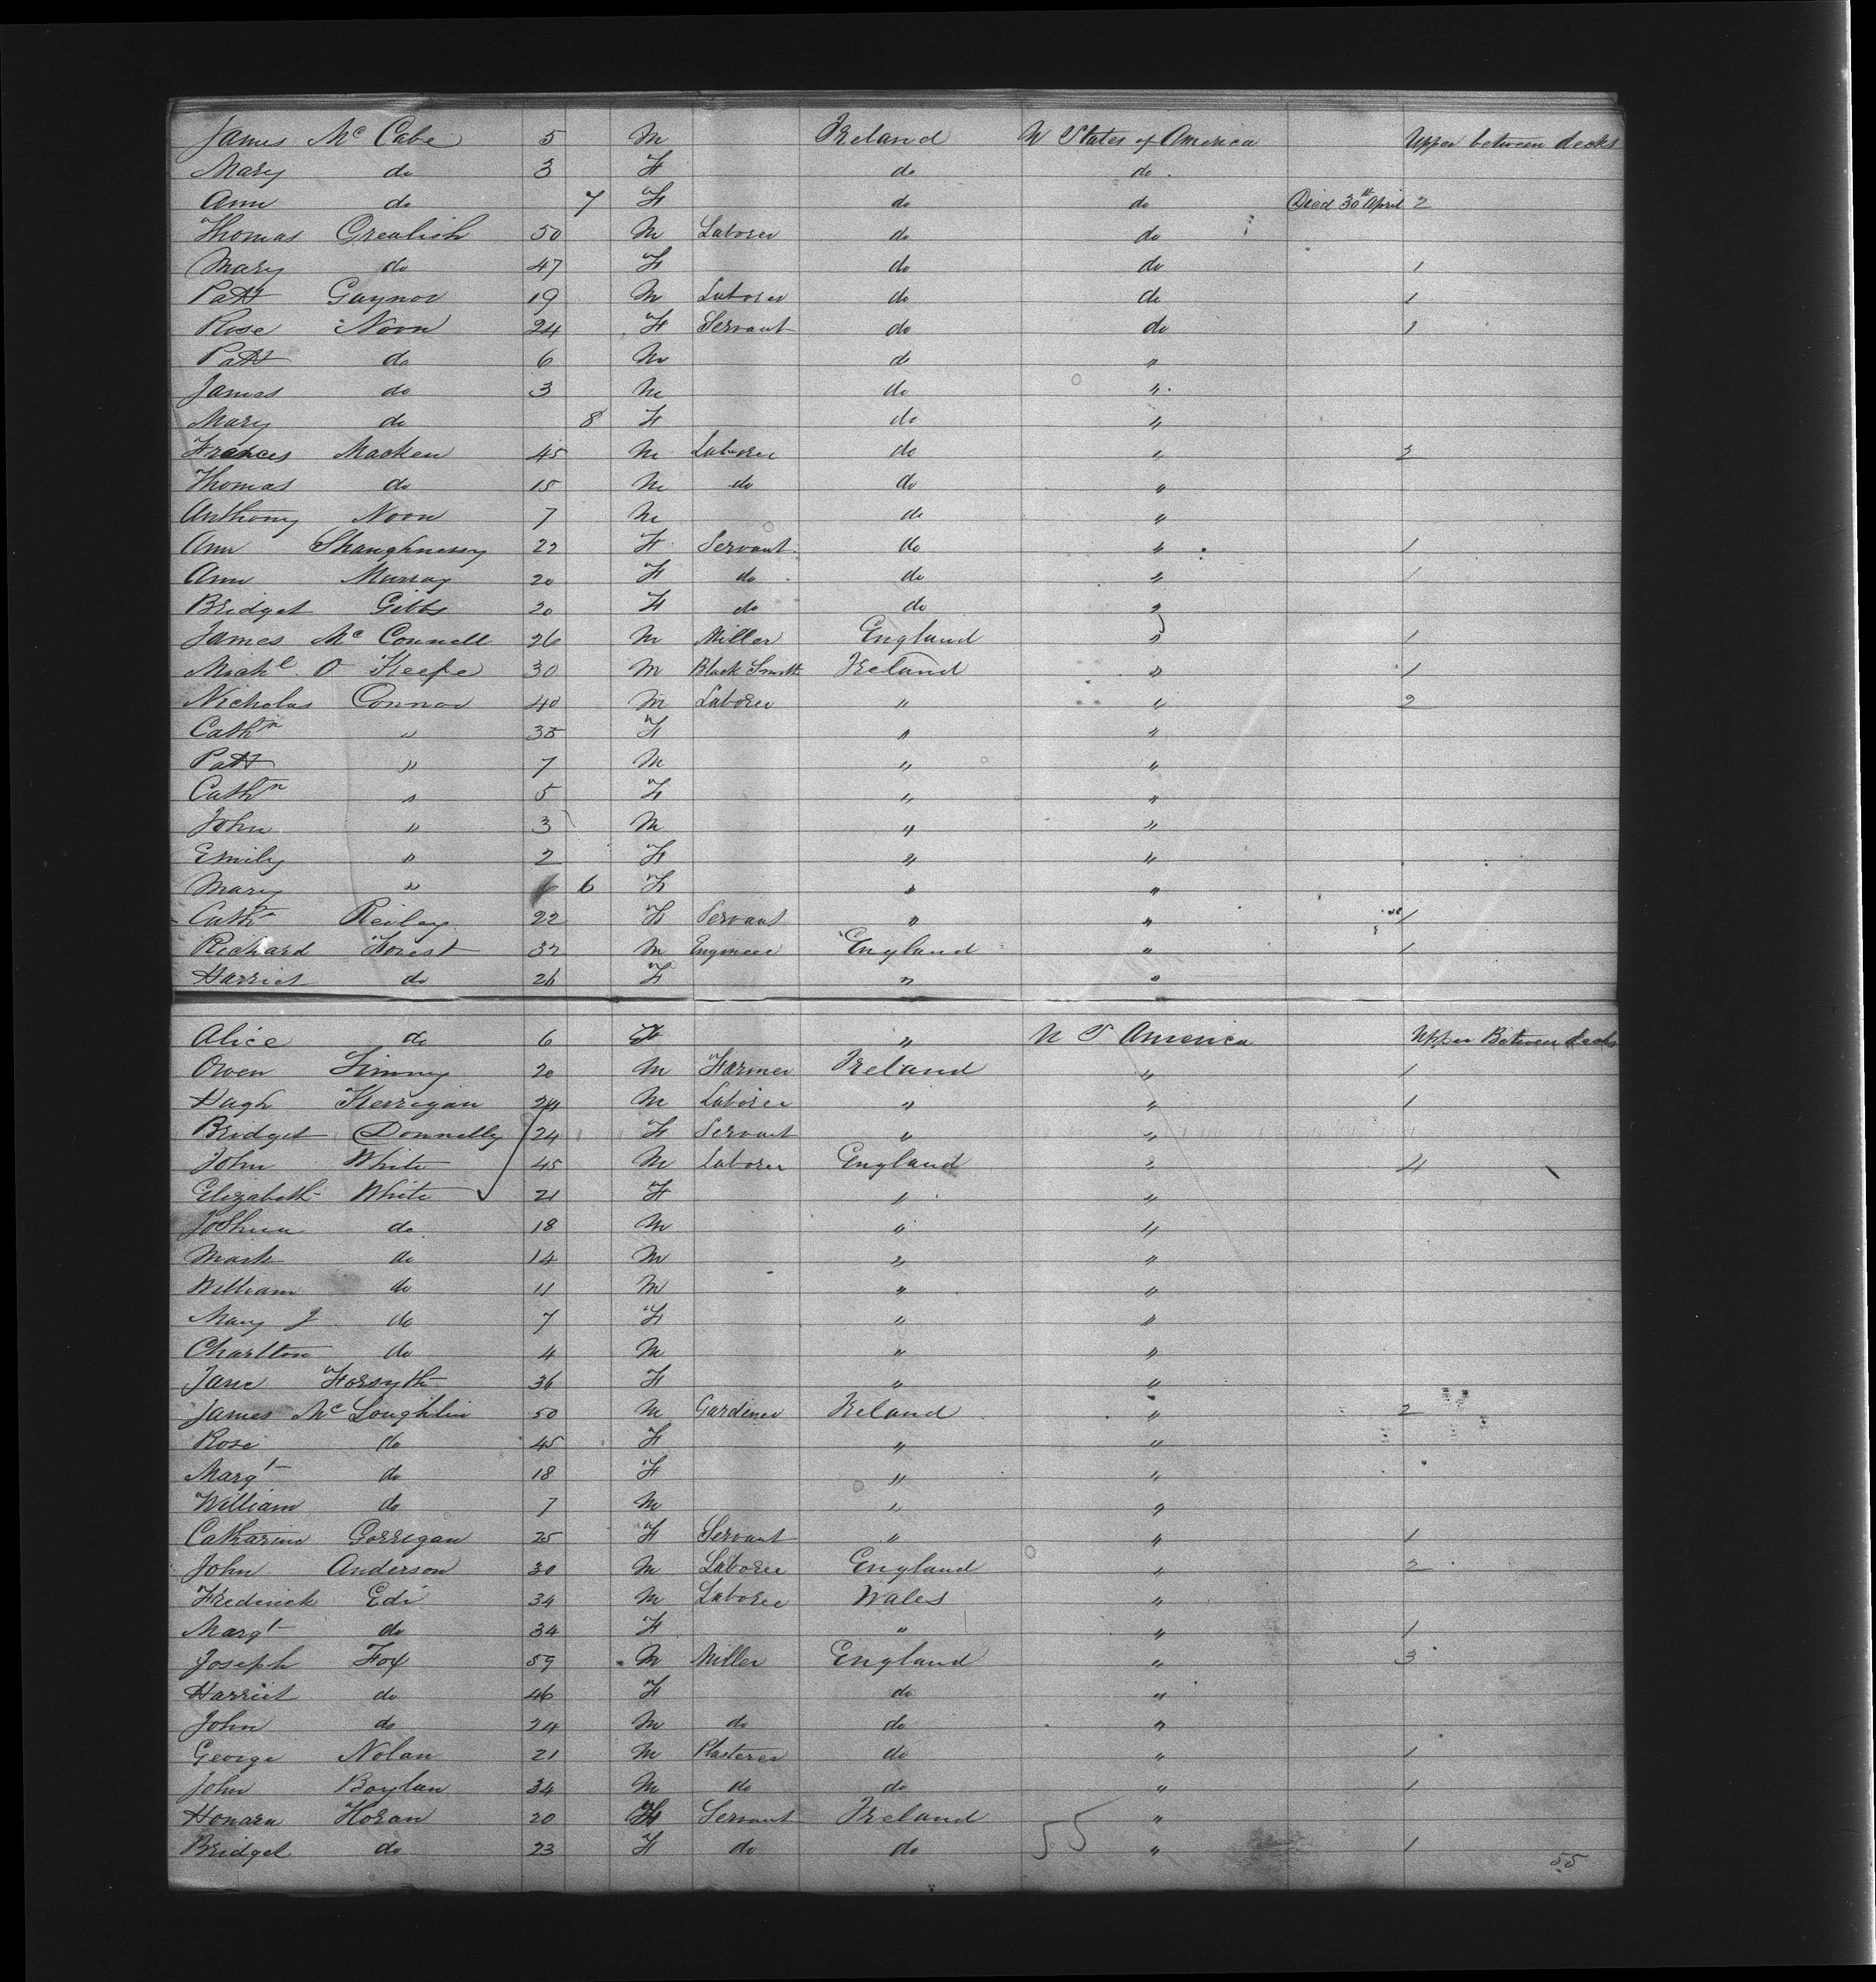 James Mc Cabe 5 M Ireland U States of America Upper between decks
Mary do 3 F do do
Ann do 7 F do do Died 30th April 2
Thomas Grealish 50 M Laborer do do
Mary do 47 F do do 1
Patt Gaynor 19 M Laborer do do 1
Rose Noon 24 F Servant do do 1
Patt do 6 M do "
James do 3 M do "
Mary do 8 F do "
Frances Macken 45 M Laborer do " 2
Thomas do 15 M do do "
Anthony Noon 7 M do "
Ann Shaughnessy 22 F Servant do " 1
Ann Murray 20 F do do " 1
Bridget Gibbs 20 F do do "
James Mc Connell 26 M Miller England " 1
Michl O Keefe 30 M Black Smith Ireland " 1
Nicholas Connor 40 M Laborer " " 2
Cathn " 35 F " "
Patt " 7 M " "
Cathn " 5 F " "
John " 3 M " "
Emily " 2 F " "
Mary " 6 F " "
Cathn Reiley 22 F Servant " " 1
Richard Forest 32 M Engineer England " 1
Harriet do 26 F " "
Alice do 6 F " U S America Upper Between decks
Owen Timmy 20 M Farmer Ireland " 1
Hugh Kerrigan 24 M Laborer " " 1
Bridget Donnelly 24 F Servant " " 1
John White 45 M Laborer England " 4
Elizabeth White 21 F " "
Joshua do 18 M " "
Mark do 14 M " "
William do 11 M " "
Mary J do 7 F " "
Charlton do 4 M " "
Jane Forsyth 36 F " "
James Mc Loughlin 50 M Gardener Ireland " 2
Rose do 45 F " "
Margt do 18 F " "
William do 7 M " "
Catharine Gorrigan 25 F Servant " " 1
John Anderson 30 M Laborer England " 2
Frederick Edi 34 M Laborer Wales "
Margt do 34 F " " 1
Joseph Fox 59 M Miller England " 3
Harriet do 46 F do "
John do 24 M do do "
George Nolan 21 M Plasterer do " 1
John Boylan 34 M do do " 1
Honara Horan 20 F Servant Ireland "
Bridget do 23 F do do 55 " 1
55